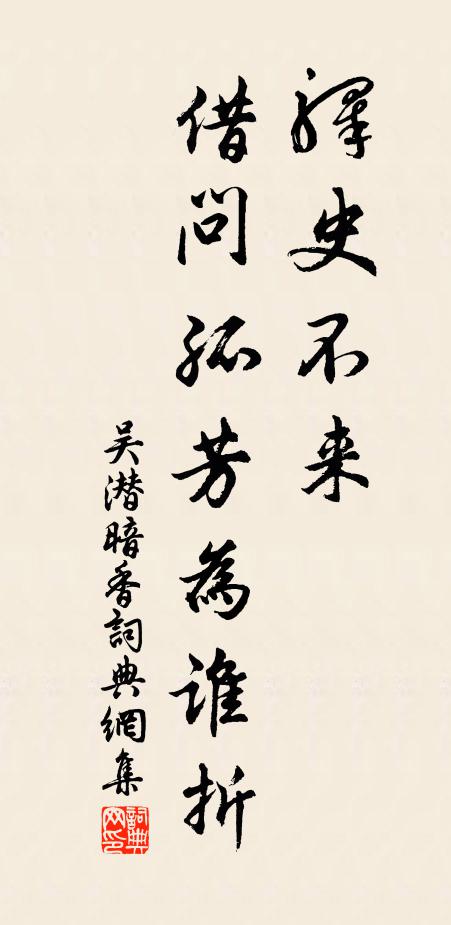 驛史不来
借問孤芳為誰折
吴潜暗香詞典網集
詞典网印